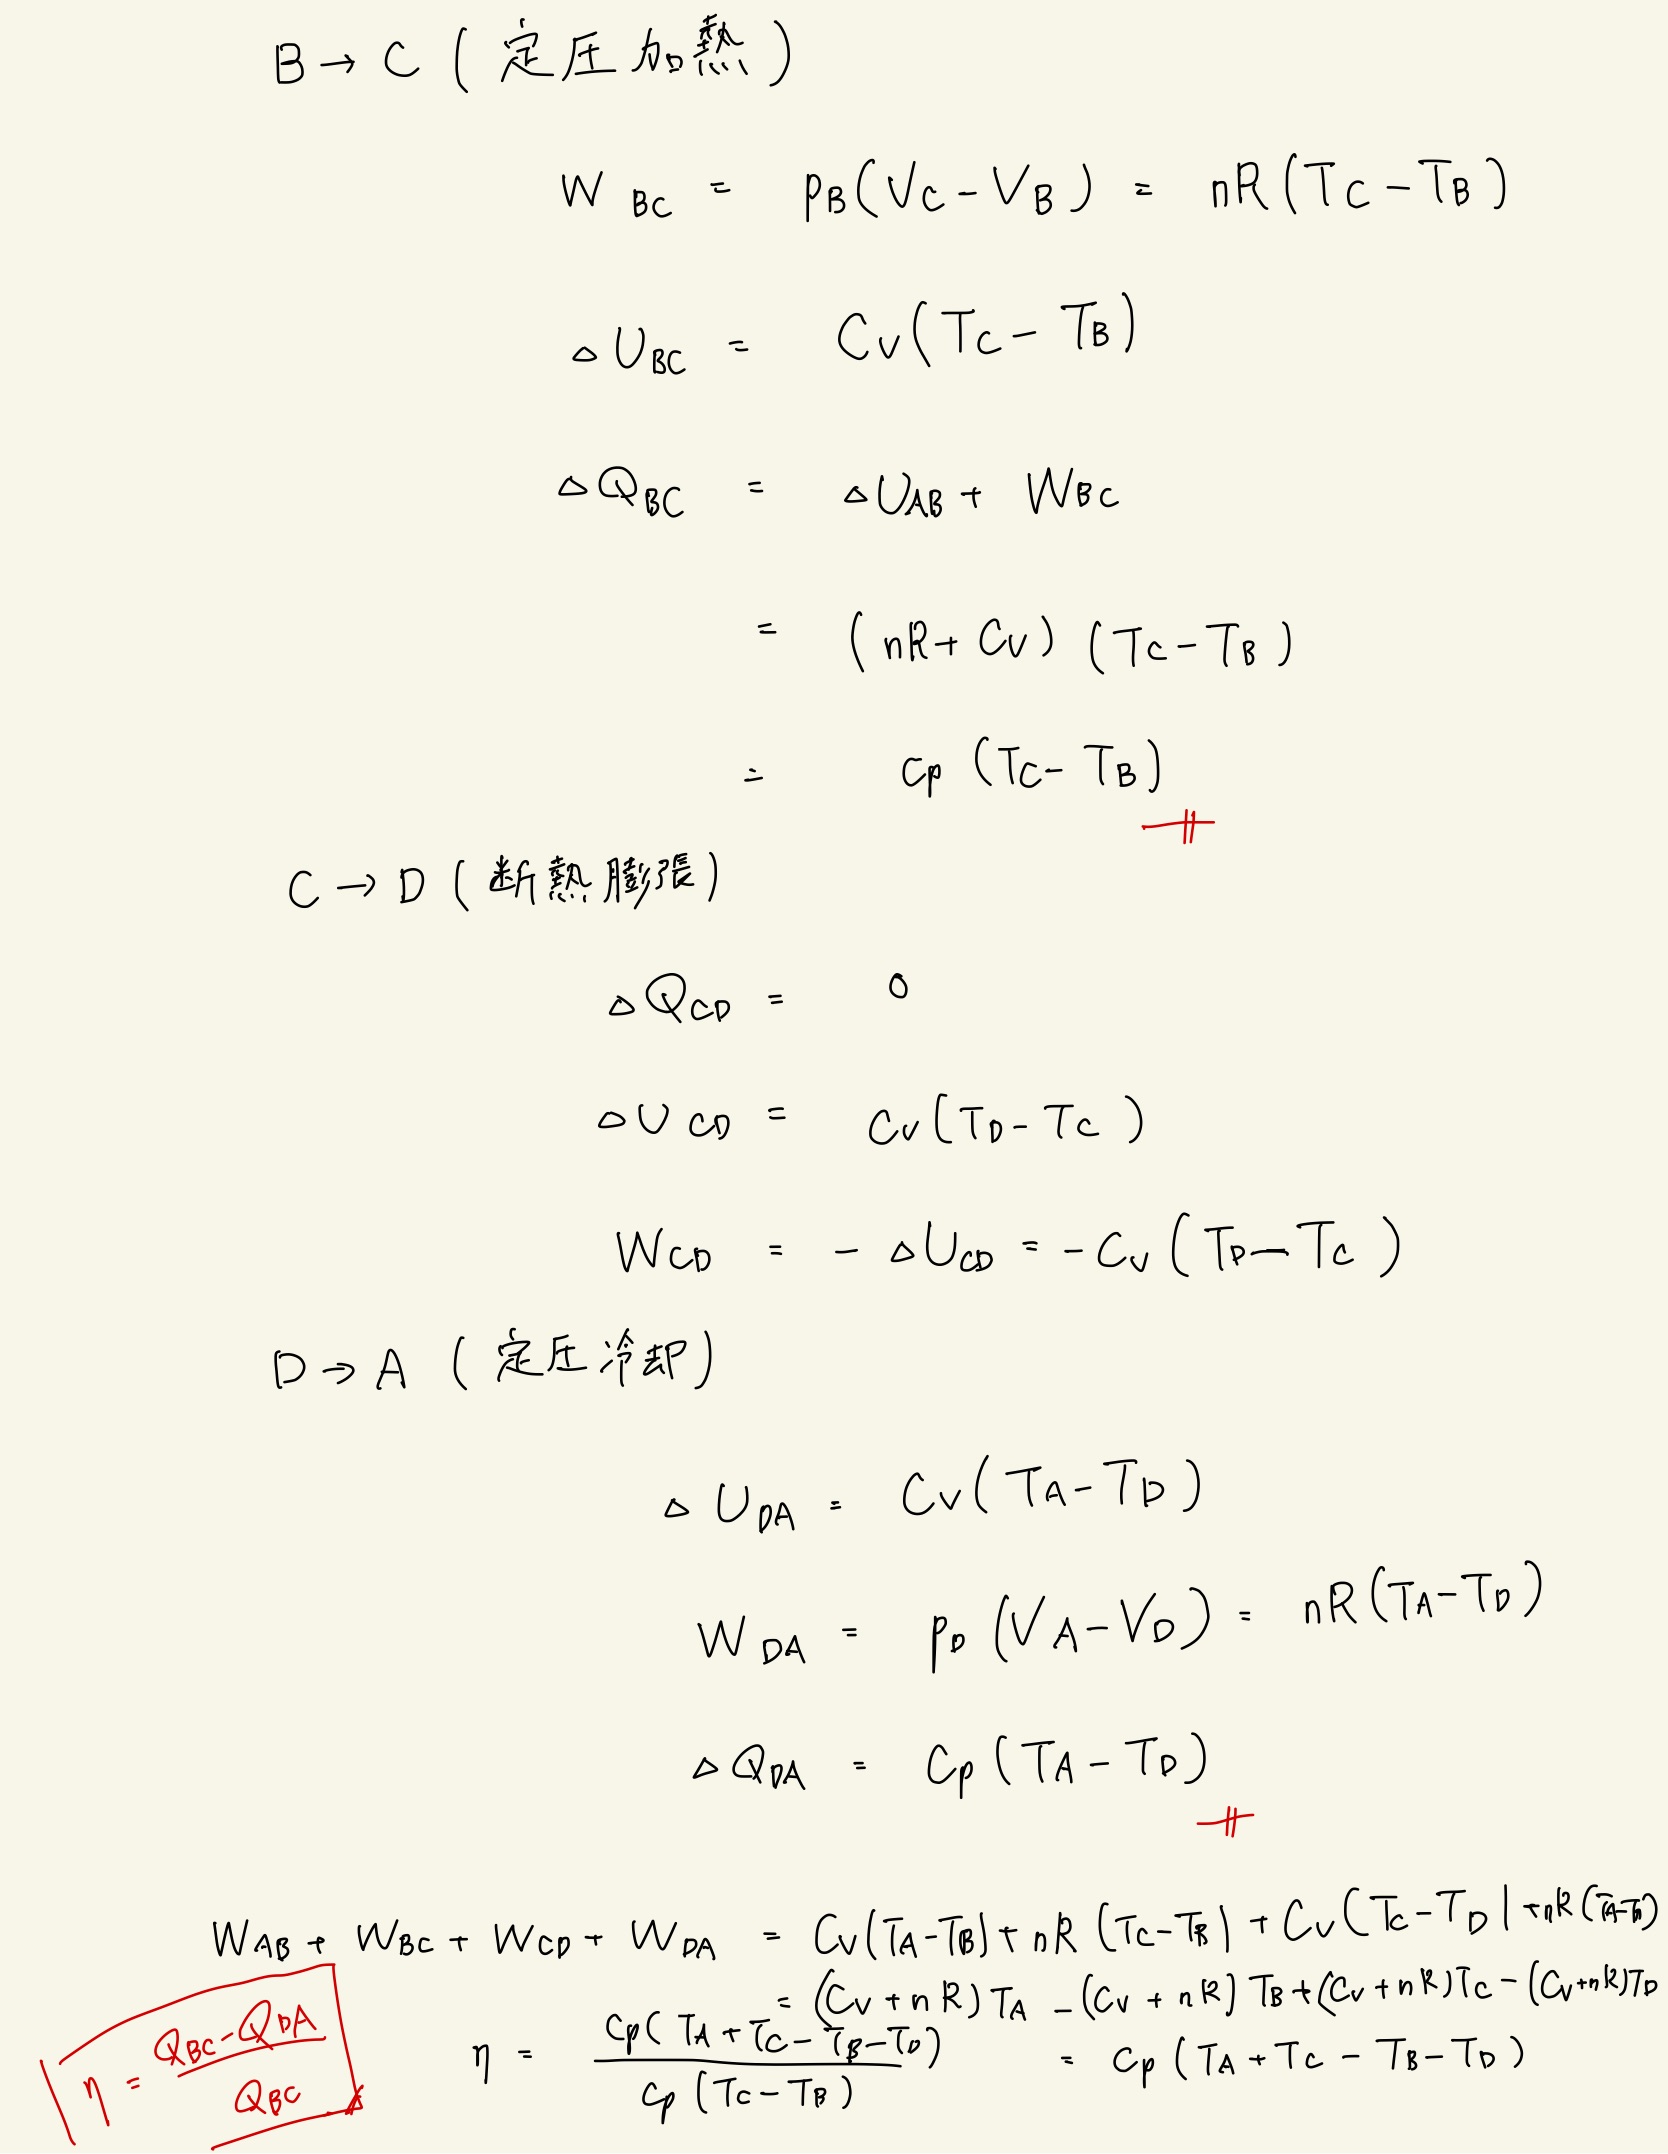 B → C (定圧加熱)
W BC = pB(VC - VB) = nR(TC - TB)
△UBC = Cv(TC - TB)
△QBC = △UAB + WBC
= (nR + Cv)(TC - TB)
= Cp(TC - TB)
C → D (断熱膨張)
△QCD = 0
△UCD = Cv(TD - TC)
WCD = - △UCD = -Cv(TD - TC)
D → A (定圧冷却)
△UDA = Cv(TA - TD)
WDA = pD(VA - VD) = nR(TA - TD)
△QDA = Cp(TA - TD)
WAB + WBC + WCD + WDA = Cv(TA - TB) + nR(TC - TB) + Cv(TC - TD) + nR(TA - TD)
= (Cv + nR)TA - (Cv + nR)TB + (Cv + nR)TC - (Cv + nR)TD
η = QBC - QDA / QBC
η = Cp(TA + TC - TB - TD) / Cp(TC - TB)
= Cp(TA + TC - TB - TD)